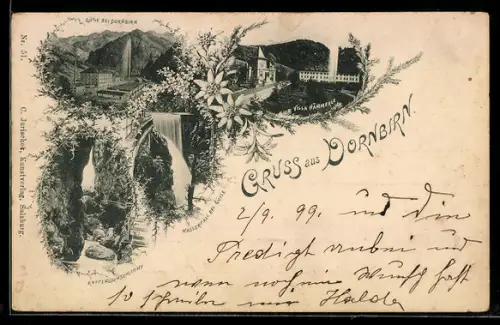 Nr. 51.
C. Jurischek, Kunstverlag, Salzburg.
GÜTLE BEI DORNBIRN
VILLA HÄMMERLE
WASSERFALL BEI GÜTLE
RAPPENLOCHSCHLUCHT
GRUSS aus DORNBIRN.
2/9. 99. und die
Predigt und
wenn noch ein Wunsch hast
so schreibe nur